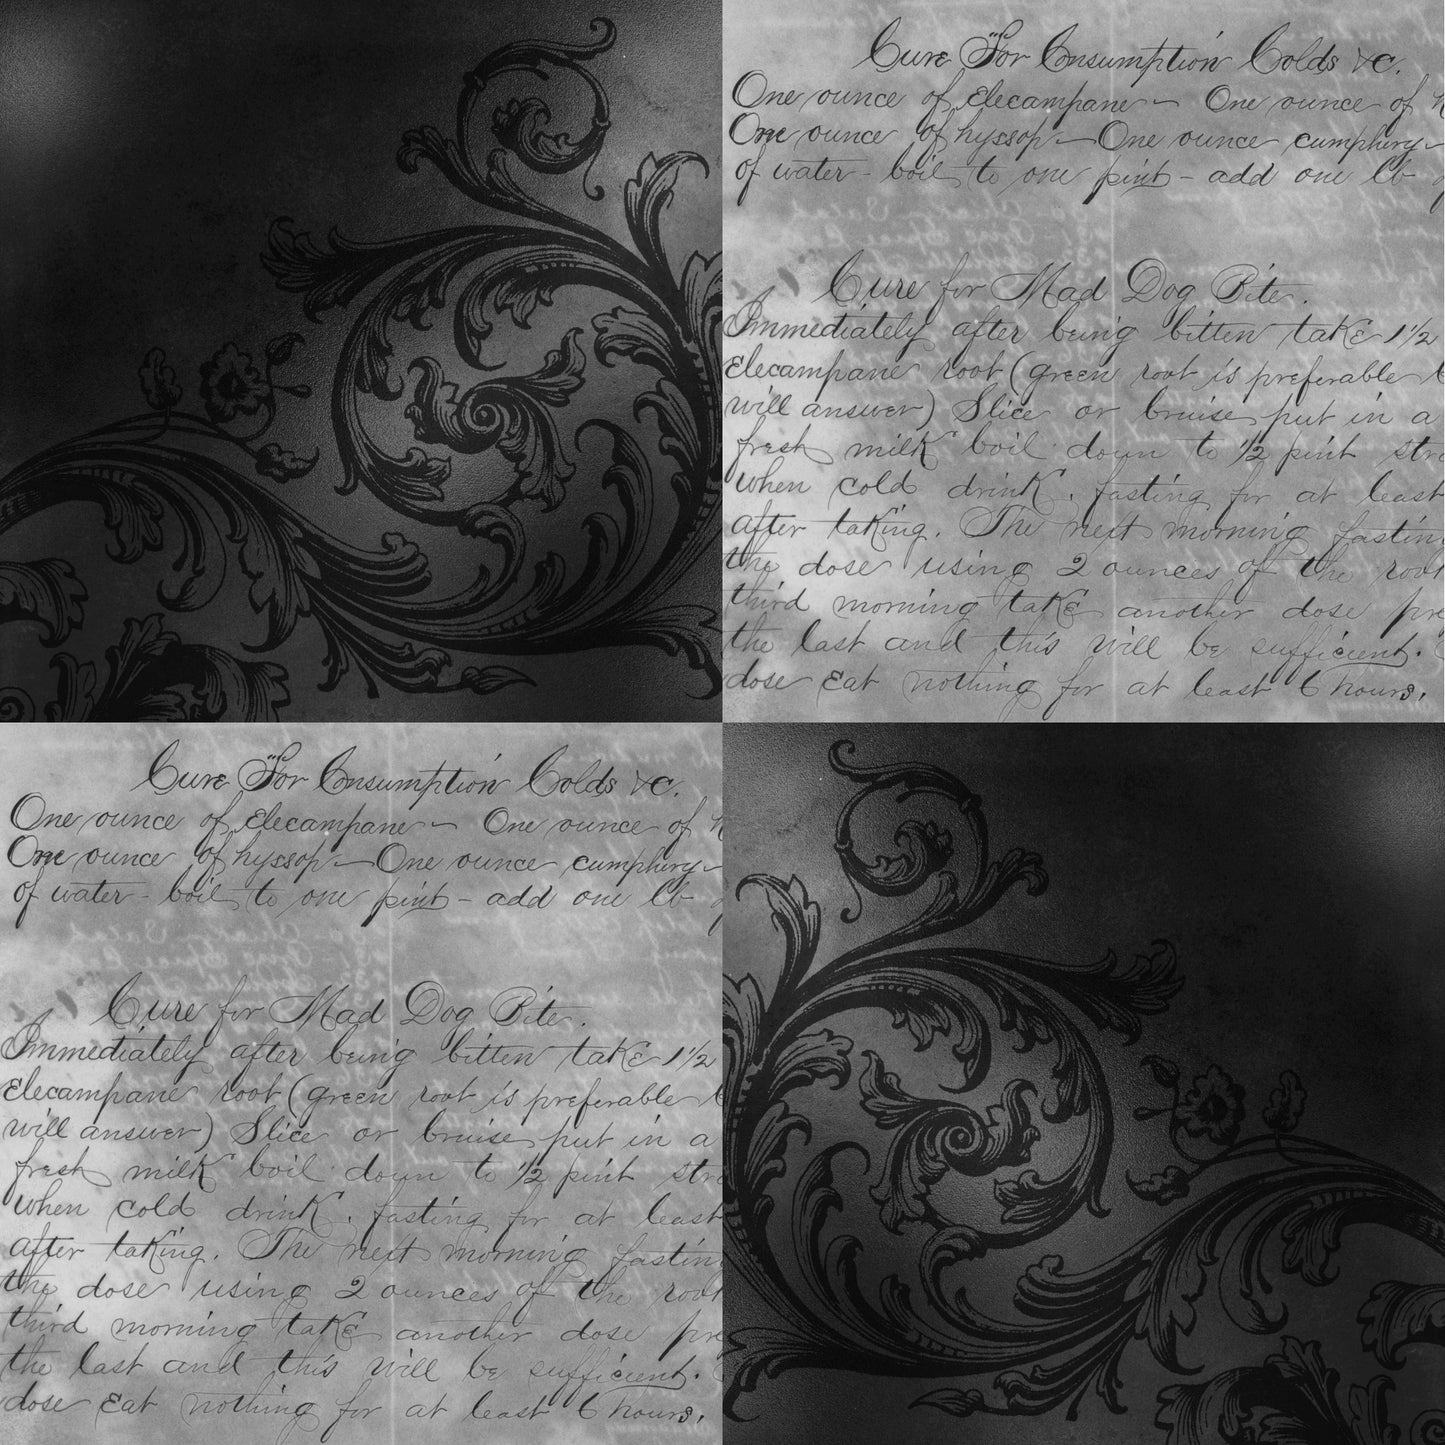 Cure For Consumption Colds &c.
One ounce of Elecampane — One ounce of
One ounce of hyssop — One ounce cumphery —
of water - boil to one pint - add one lb
Cure for Mad Dog Bite.
Immediately after being bitten take 1 1/2
Elecampane root (green root is preferable
will answer) Slice or bruise put in a
fresh milk boil down to 1/2 pint
when cold drink. fasting for at least
after taking. The next morning fasting
the dose using 2 ounces of the root
third morning take another dose
the last and this will be sufficient.
dose Eat nothing for at least 6 hours.
Cure For Consumption Colds &c.
One ounce of Elecampane — One ounce of
One ounce of hyssop — One ounce cumphery —
of water - boil to one pint - add one lb
Cure for Mad Dog Bite.
Immediately after being bitten take 1 1/2
Elecampane root (green root is preferable
will answer) Slice or bruise put in a
fresh milk boil down to 1/2 pint
when cold drink. fasting for at least
after taking. The next morning fasting
the dose using 2 ounces of the root
third morning take another dose
the last and this will be sufficient.
dose Eat nothing for at least 6 hours.